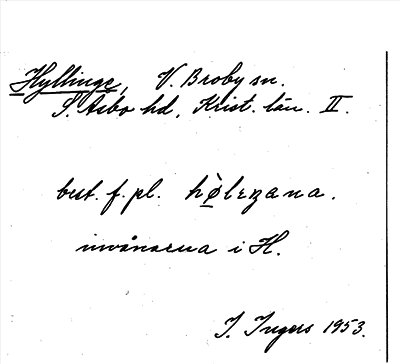 Hyllinge, V. Broby sn.
S. Åsbo hd, Krist. län. II.
best. f. pl. hø̀lɛŋana.
invånarna i H.
I. Ingers 1953.